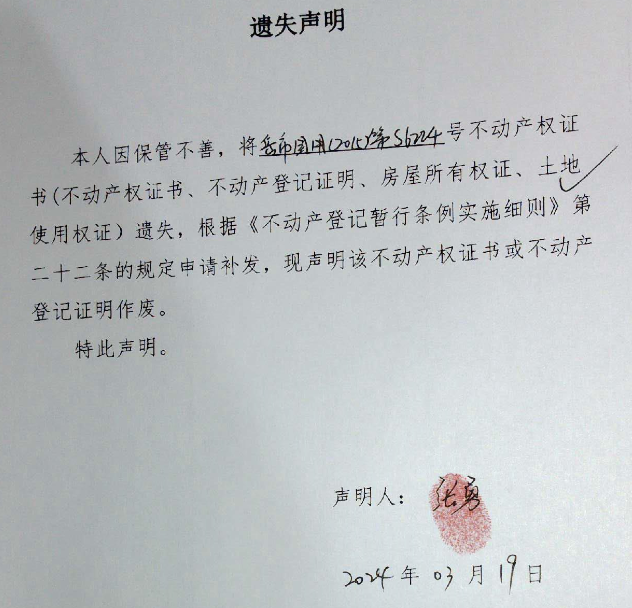 遗失声明
本人因保管不善，将岳市国用(2015)第S6224号不动产权证
书(不动产权证书、不动产登记证明、房屋所有权证、土地
使用权证）遗失，根据《不动产登记暂行条例实施细则》第
二十二条的规定申请补发，现声明该不动产权证书或不动产
登记证明作废。
特此声明。
声明人：张勇
2024年03月19日